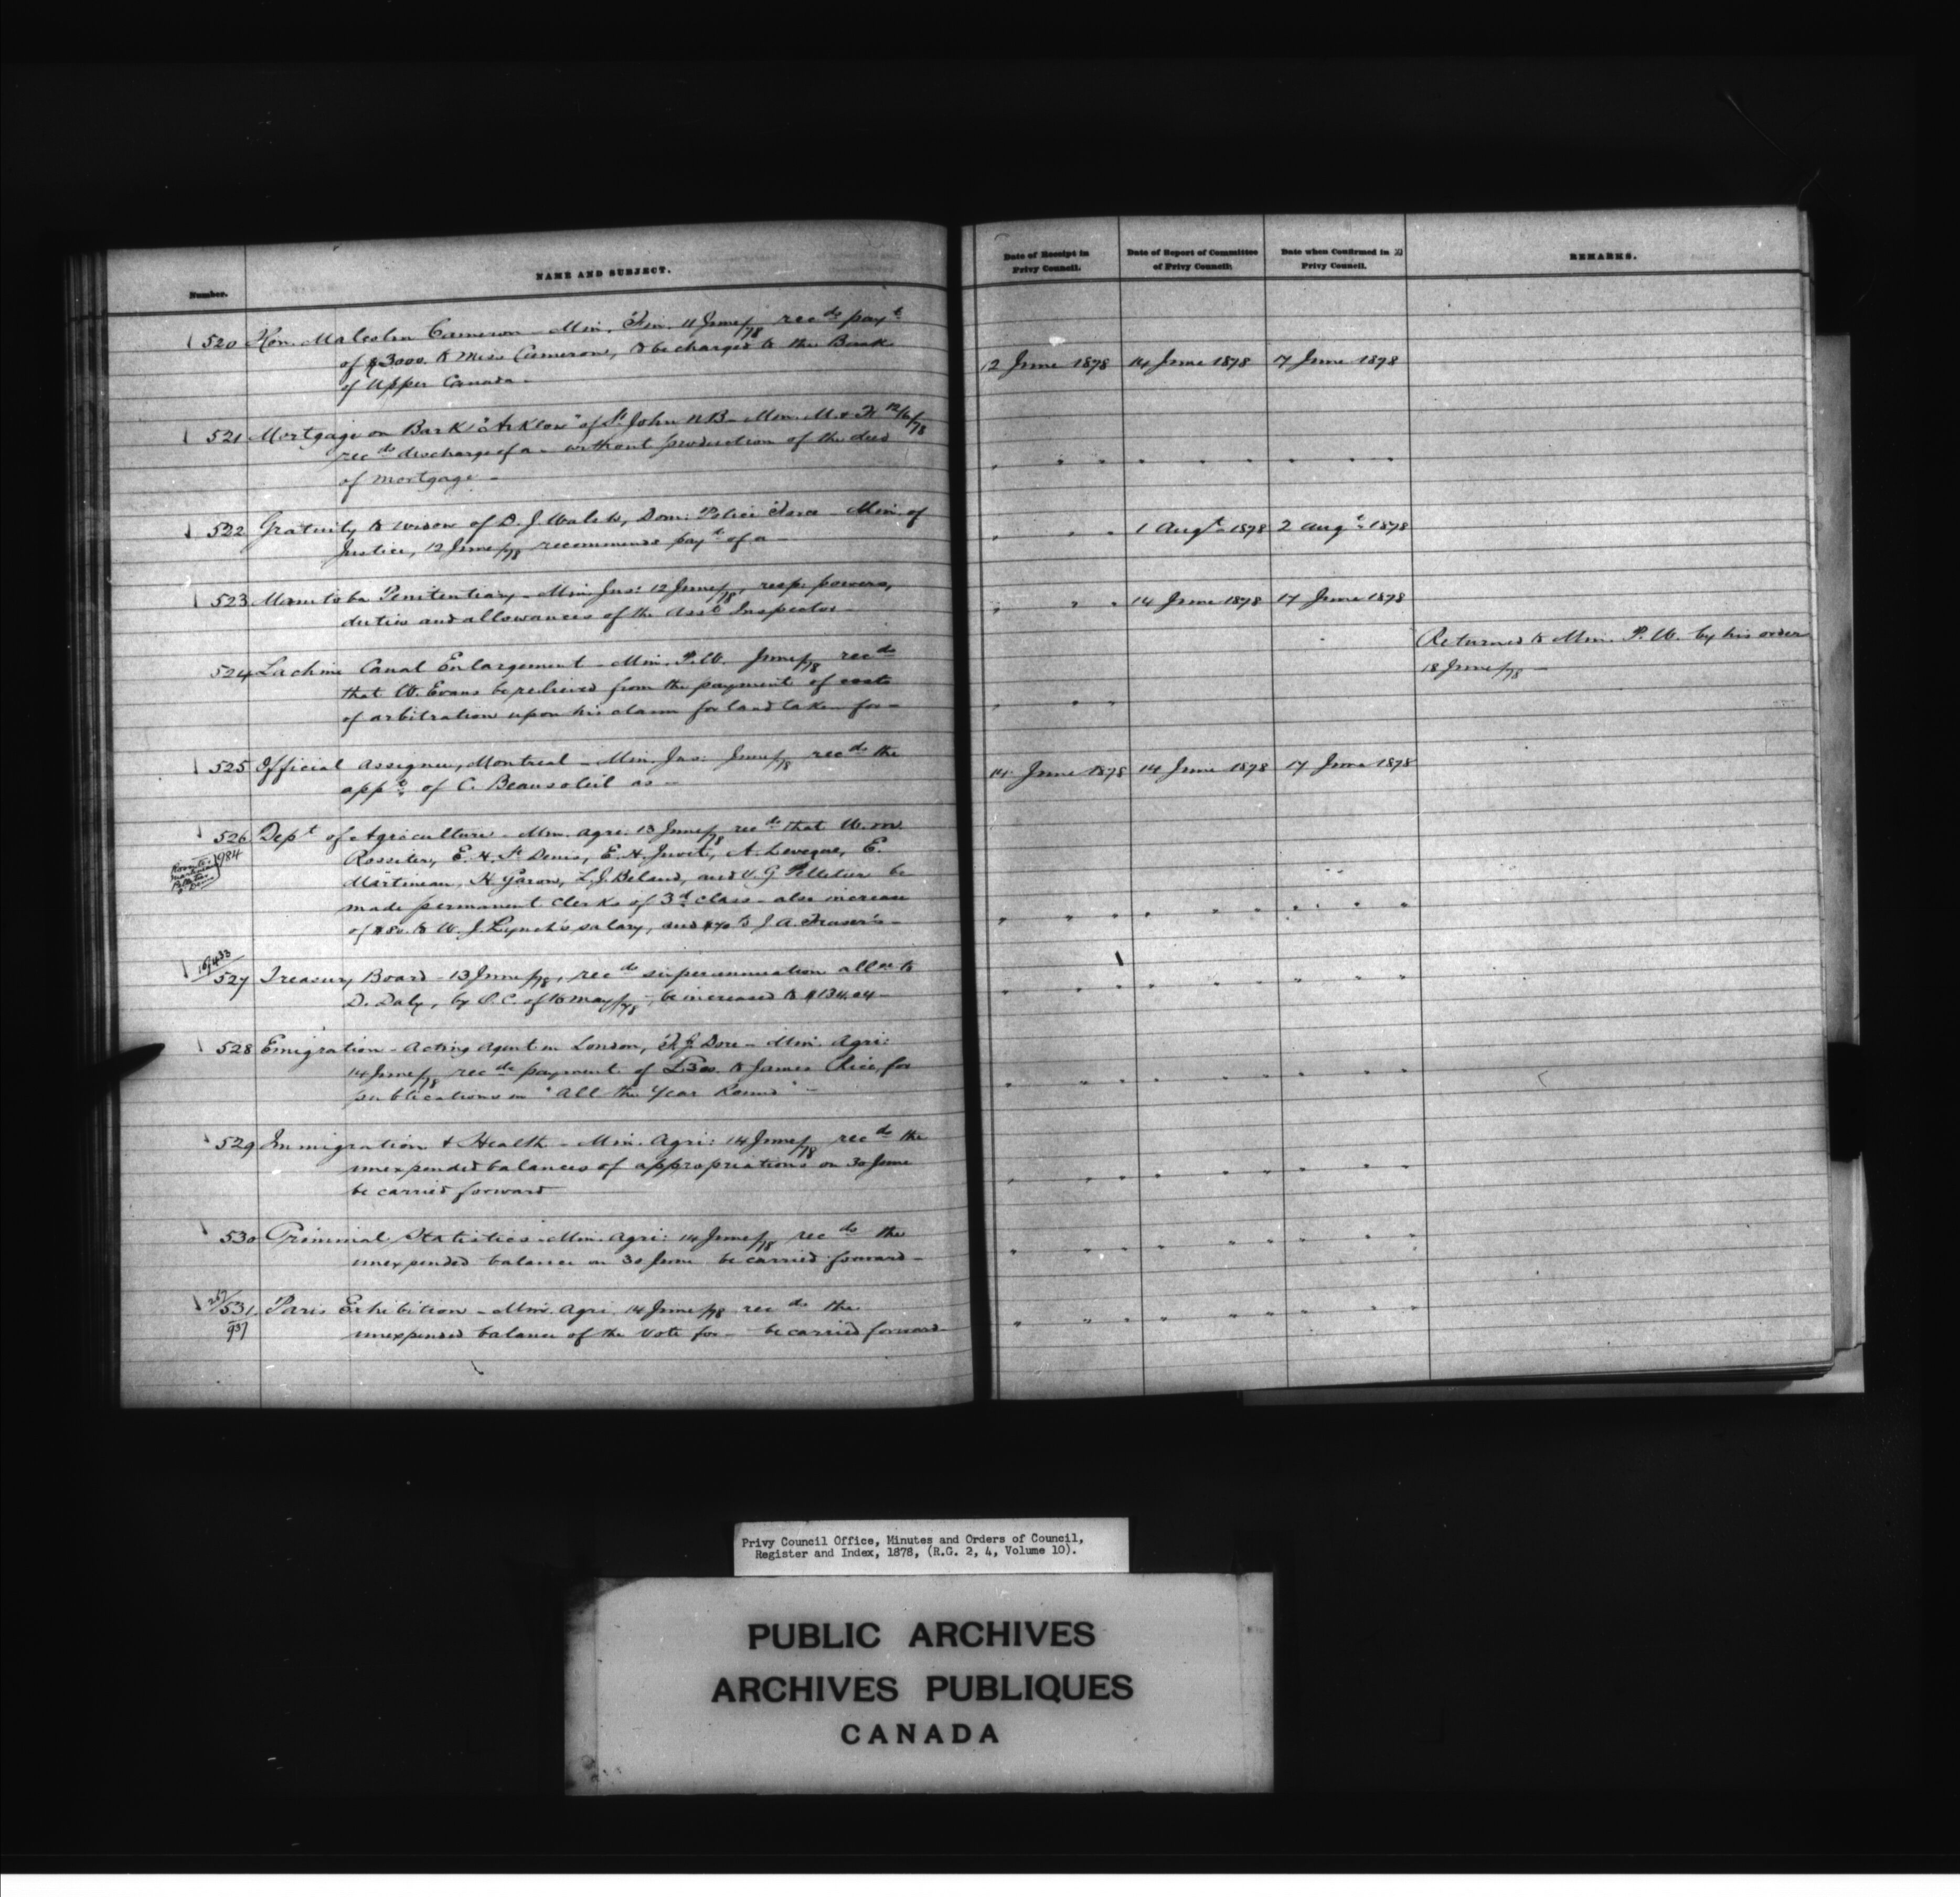 Number.
NAME AND SUBJECT.
Date of Receipt in
Privy Council.
Date of Report of Committee
of Privy Council.
Date when Confirmed in
Privy Council.
REMARKS.
520 Hon. Malcolm Cameron – Min. Fin. 11 June/78 recds payt
of $3000. to Miss Cameron, to be charged to the Bank
of Upper Canada –
12 June 1878 14 June 1878 17 June 1878
521 Mortgage on Bark "Arklow" of St. John N.B – Min. M. & F. 12/6/78
recds discharge of a – without production of the deed
of mortgage –
" " " " " " " " "
522 Gratuity to widow of D. J. Walsh, Dom: Police Force – Min. of
Justice, 12 June/78 recommends payt of a –
" " " 1 Augt 1878 2 Augt 1878
523 Manitoba Penitentiary – Min. Jus: 12 June/78, resp: powers,
duties and allowances of the Asst Inspector –
" " " 14 June 1878 17 June 1878
524 Lachine Canal Enlargement – Min. P.W. June/78 recds
that W. Evans be relieved from the payment of costs
of arbitration upon his claim for land taken for –
" " "
Returned to Min. P. W. by his order
18 June/78 –
525 Official Assignee, Montreal – Min. Jus: June/78 recds the
appt of C. Beausoleil as –
14 June 1878 14 June 1878 17 June 1878
526 Dept of Agriculture – Min. Agri: 13 June/78 recds that W.
Rossiter, E. H. St Denis, E. H. A. Leveque, E.
Martineau, H. L. J. Beland, and V. G. Pelletier be
made permanent Clerks of 3d class – also increase
of $80. to W. J. Lynch's salary, and to J. A. Fraser's –
984
" " " " " " " " "
527 Treasury Board – 13 June/78, recds superannuation allce to
D. Daly, by O.C. of May/78, be increased to $134.04 –
" " " " " " " " "
528 Emigration – Acting Agent in London, F. J. Dore – Min. Agri:
14 June/78 recds payment of to James Rice, for
publications in "All the Year Round" –
" " " " " " " " "
529 Immigration & Health – Min. Agri: 14 June/78 recds the
unexpended balances of appropriations on 30 June
be carried forward
" " " " " " " " "
530 Criminal Statistics – Min. Agri: 14 June/78 recds the
unexpended balance on 30 June be carried forward –
" " " " " " " " "
531 Paris Exhibition – Min. Agri. 14 June/78 recds the
937
unexpended balance of the Vote for – be carried forward
" " " " " " " " "
Privy Council Office, Minutes and Orders of Council,
Register and Index, 1878, (R.G. 2, 4, Volume 10).
PUBLIC ARCHIVES
ARCHIVES PUBLIQUES
CANADA